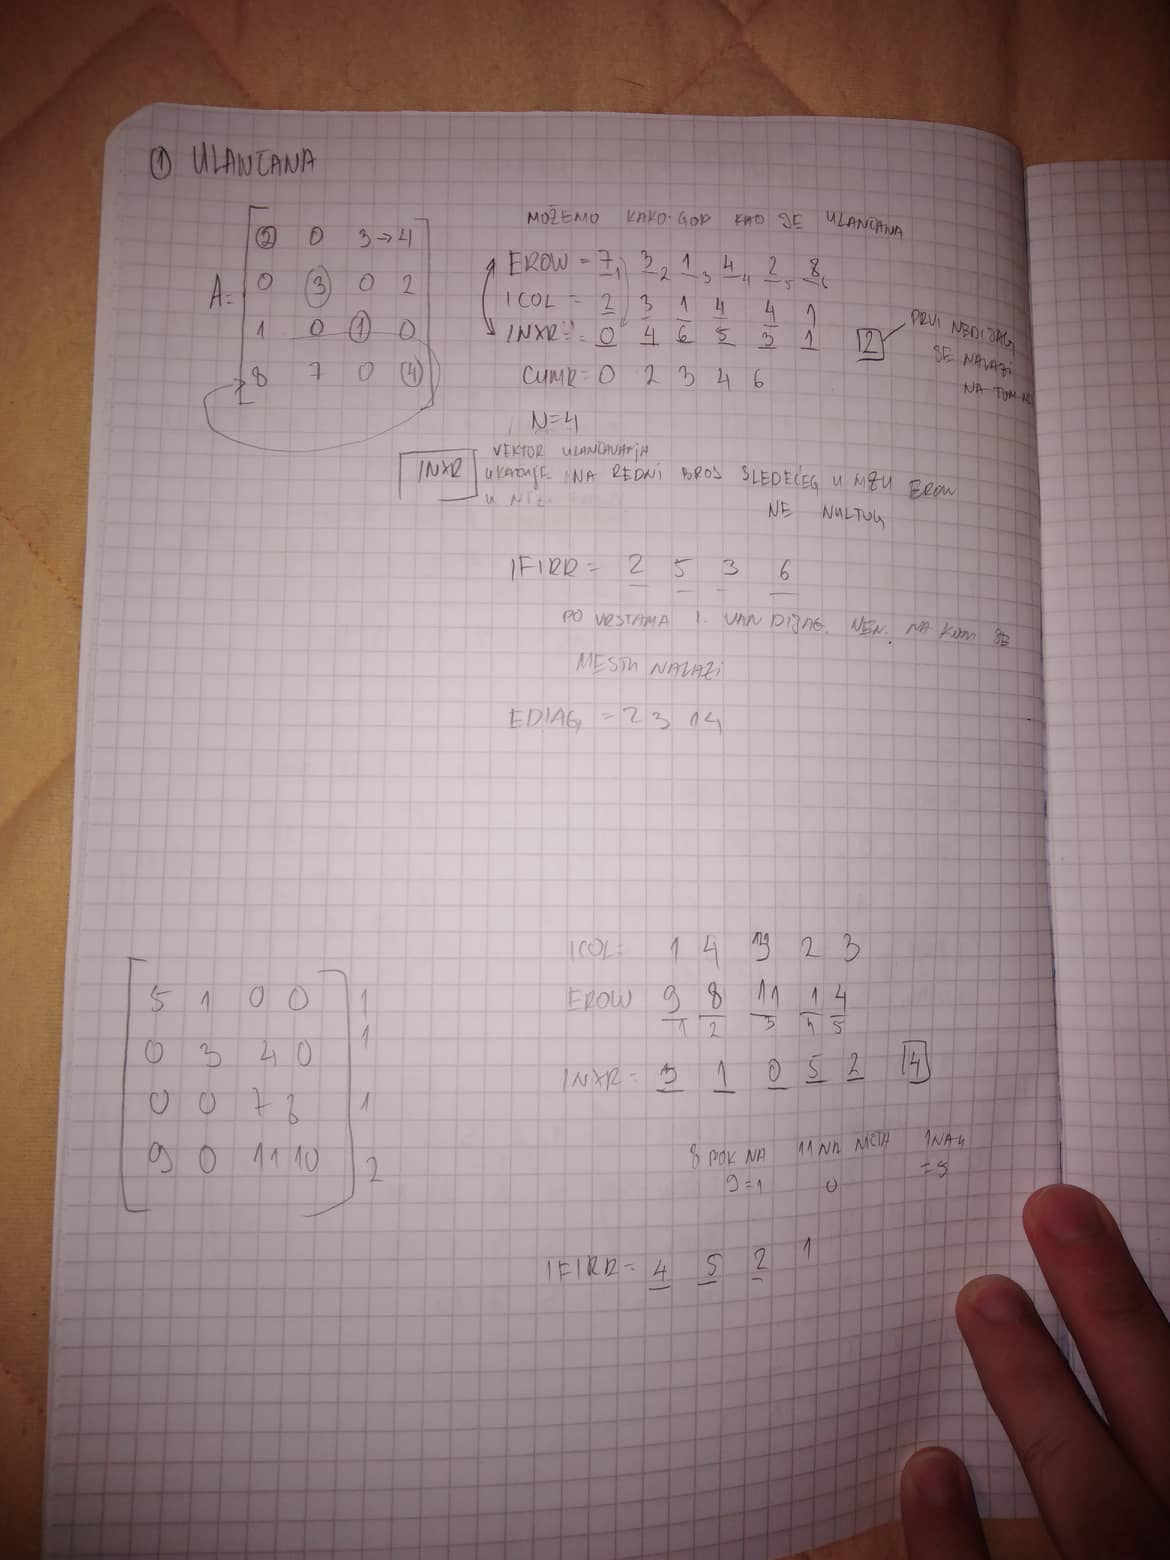 ① ULANČANA
MOŽEMO KAKO GOD KAO JE ULANČANA
A =
2 0 3 → 4
0 3 0 2
1 0 1 0
8 7 0 4
EROW = 7 1 3 2 1 3 4 4 2 5 8 6
ICOL = 2 3 1 4 4 1
INXR = 0 4 6 5 3 1 2
PRVI NEDIJAG
SE NALAZI
NA TOM
CUMR = 0 2 3 4 6
N=4
INXR
VEKTOR ULANČAVANJA
UKAZUJE NA REDNI BROJ SLEDEĆEG U NIZU EROW
U NIZ
NE NULTOG
IFIRR = 2 5 3 6
PO VRSTAMA 1. VAN DIJAG. NEN. NA KOM SE
MESTU NALAZI
EDIAG = 2 3 1 4
5 1 0 0 1
0 3 4 0 1
0 0 7 8 1
9 0 11 10 2
ICOL= 1 4 3 2 3
EROW 9 8 11 1 4
1 2 3 4 5
INXR = 3 1 0 5 2 4
8 POK NA 11 NA NIŠTA 1 NA 4
9=1 0 =5
IFIRR = 4 5 2 1